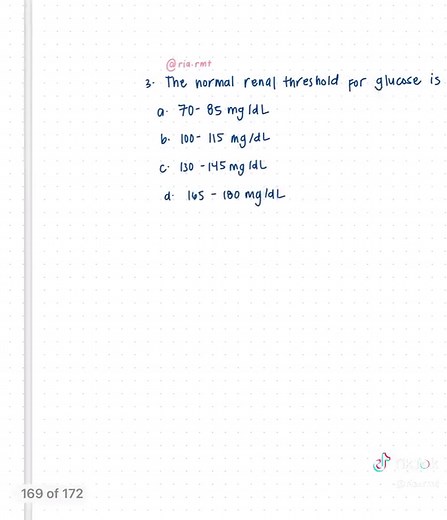 @ria.rmt
3. The normal renal threshold for glucose is
a. 70 - 85 mg/dL
b. 100 - 115 mg/dL
c. 130 - 145 mg/dL
d. 165 - 180 mg/dL
169 of 172